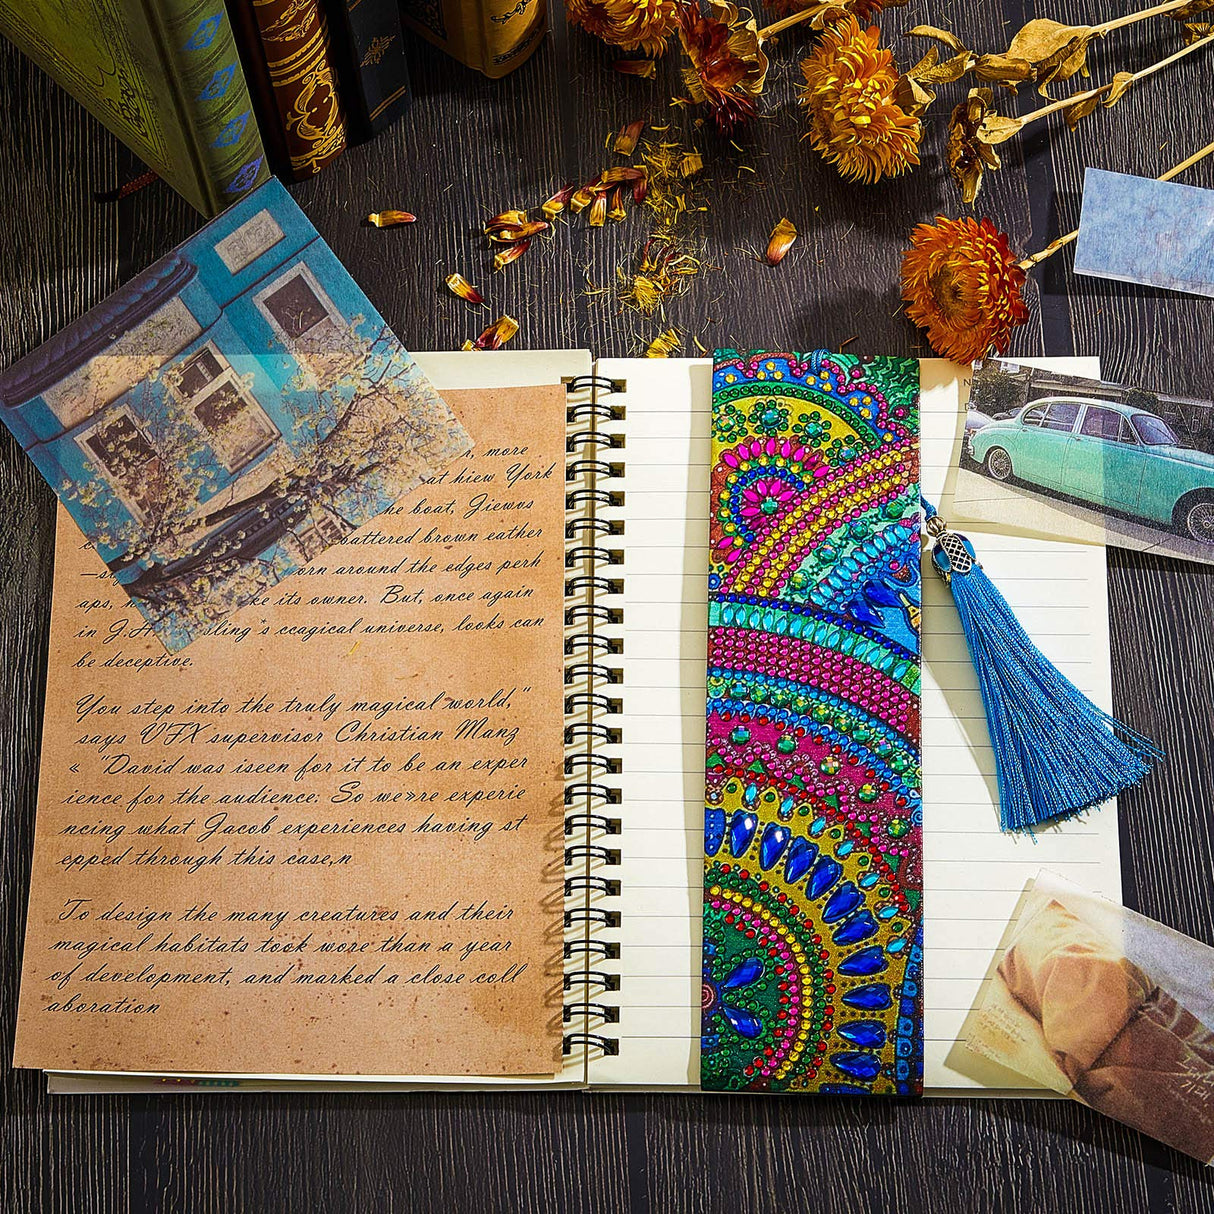 r, more
at hiew York
he boat, Jiewvs
battered brown eather
orn around the edges perh
aps, ke its owner. But, once again
in J. sling's ccagical universe, looks can
be deceptive.
You step into the truly magical world,"
says VFX supervisor Christian Manz
« "David was iseen for it to be an exper
ience for the audience: So we»re experie
ncing what Jacob experiences having st
epped through this case,n
To design the many creatures and their
magical habitats took wore than a year
of development, and marked a close coll
aboration